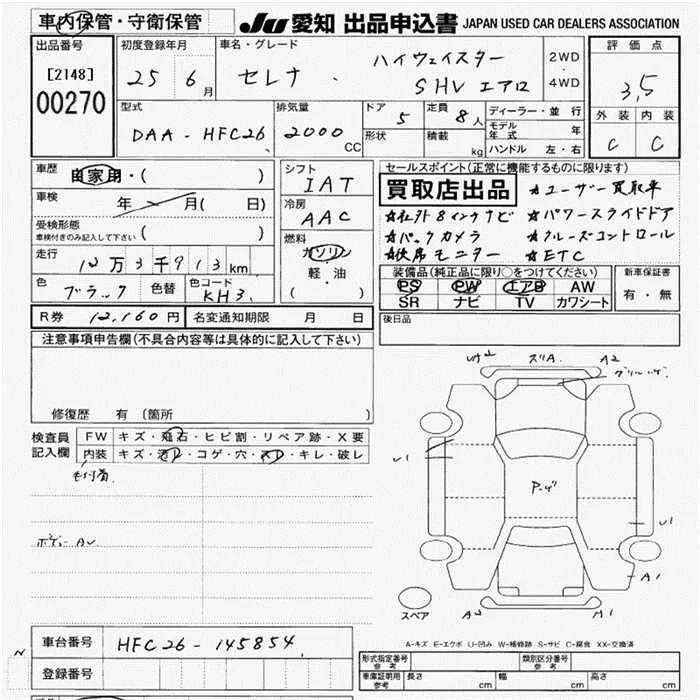 車内保管・守衛保管 JU 愛知 出品申込書 JAPAN USED CAR DEALERS ASSOCIATION
出品番号 [2148] 00270
初度登録年月 25 6月
車名・グレード セレナ ハイウェイスター
SHV エアロ
2WD・4WD
評価点 3,5
外装 内装
C C
型式 DAA-HFC26
排気量 2000 CC
ドア 5
形状
定員 8人
積載 kg
ディーラー・並行
モデル年式 年
ハンドル 左・右
車歴 自家用・( )
車検 年 月( 日)
受検形態 ( )
車検付きのみ記入して下さい
走行 12万3千913km
色 ブラック 色替 色コード KH3
シフト IAT
冷房 AAC
燃料 ガソリン
軽・油
( )
セールスポイント(正常に機能するものに限ります)
買取店出品 ☆ユーザー買取車
☆社外8インチナビ ☆パワースライドドア
☆バックカメラ ☆クルーズコントロール
☆後席モニター ☆ETC
装備品(純正品に限り○をつけてください) 新車保証書
PS PW エアB AW 有・無
SR ナビ TV カワシート
R券 12,160円 名変通知期限 月 日
後日品
注意事項申告欄(不具合内容等は具体的に記入して下さい)
修復歴 有 (箇所 )
検査員記入欄
FW キズ・飛石・ヒビ割・リペア跡・X要
内装 キズ・汚レ・コゲ・穴・スレ・キレ・破レ
ボデー AU
スリA A2
グリルハゲ
U1
U1
A1
A2 M1
スペア
A-キズ E-エクボ U-凹み W-補修跡 S-サビ C-腐食 XX-交換済
車台番号 HFC26-145854
登録番号
形式指定番号 参考 類別区分番号 参考
車庫証明用 参考 長さ cm 幅 cm 高さ cm